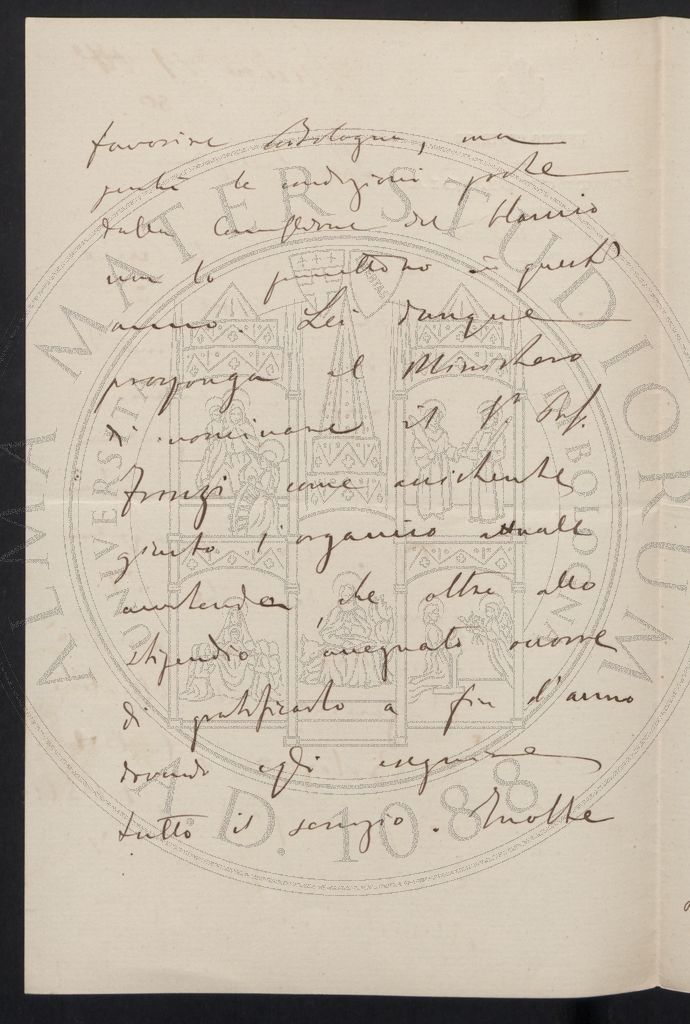 favorire Bologna, ma
perché le condizioni poste
dalla Commissione del Bilancio
non lo permettono in questo
anno. Lei dunque
proponga al Ministero
di nominare il Sr. Prof.
come assistente
giusto l'organico attuale
che oltre allo
stipendio assegnato occorre
di gratificarlo a fin d'anno
dovendo egli eseguire
tutto il servizio. Inoltre
ALMA MATER STUDIORUM
UNIVERSITAS BONONIA
A.D. 1088